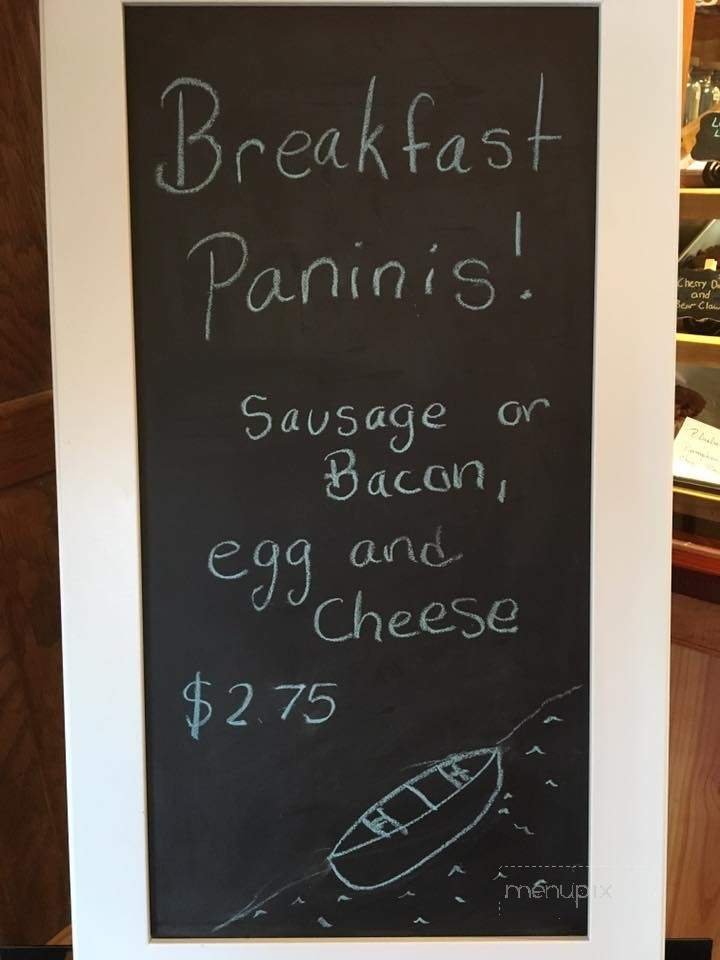 Breakfast
Paninis!
Sausage or
Bacon,
egg and
Cheese
$2.75
Cherry
and
Bear Claw
menupix